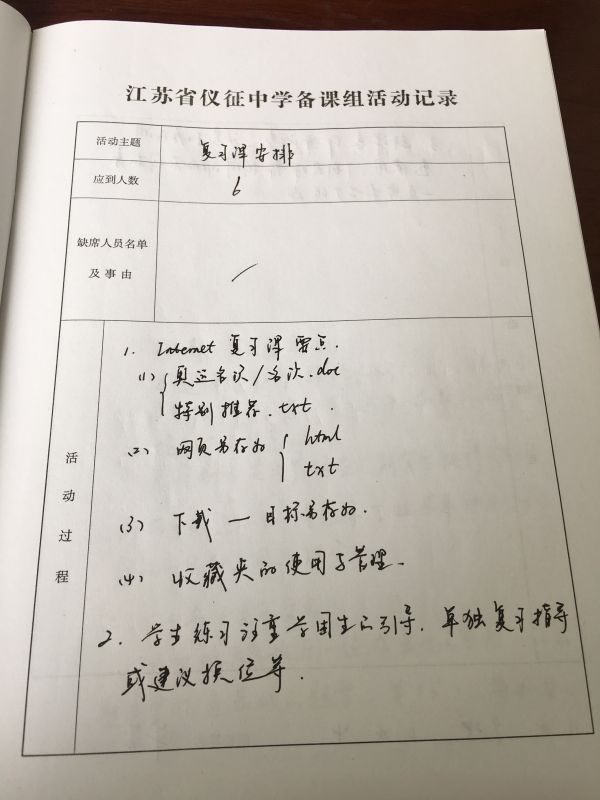 江苏省仪征中学备课组活动记录
活动主题 复习课安排
应到人数 6
缺席人员名单
及事由
活动过程
1. Internet 复习课要点.
(1) 奥运名次/名次.doc
特别推荐.txt.
(2) 网页另存为 html
txt
(3) 下载—目标另存为.
(4) 收藏夹的使用与管理.
2. 学生练习注重学困生的引导. 单独复习指导
或建议换位等.